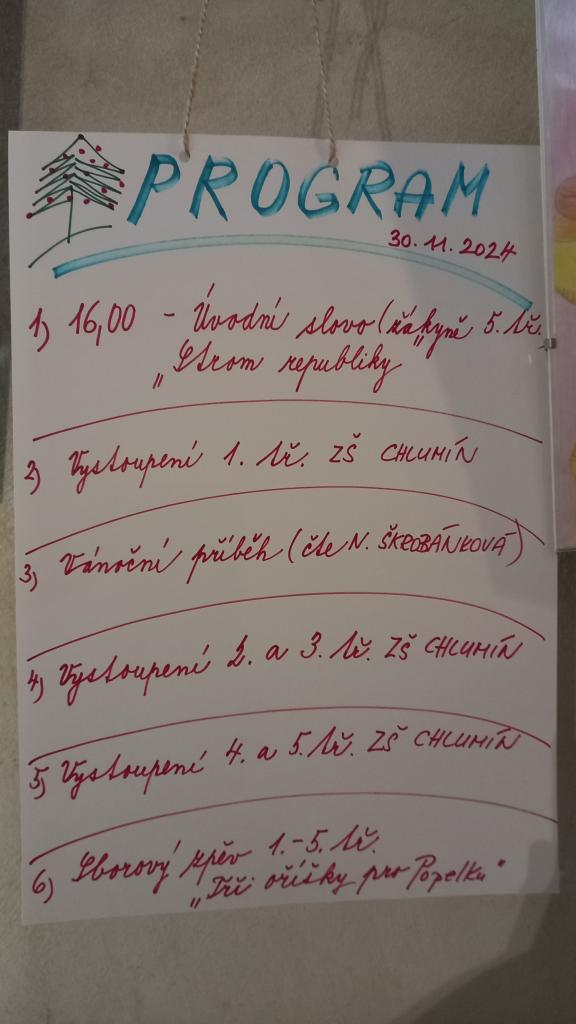 PROGRAM
30.11.2024
1) 16,00 - Úvodní slovo (žákyně 5. tř.
„Strom republiky"
2) Vystoupení 1. tř. ZŠ CHLUMÍN
3) Vánoční příběh (čte N. ŠKROBÁNKOVÁ)
4) Vystoupení 2. a 3. tř. ZŠ CHLUMÍN
5) Vystoupení 4. a 5. tř. ZŠ CHLUMÍN
6) Sborový zpěv 1.-5. tř.
„Tři oříšky pro Popelku"